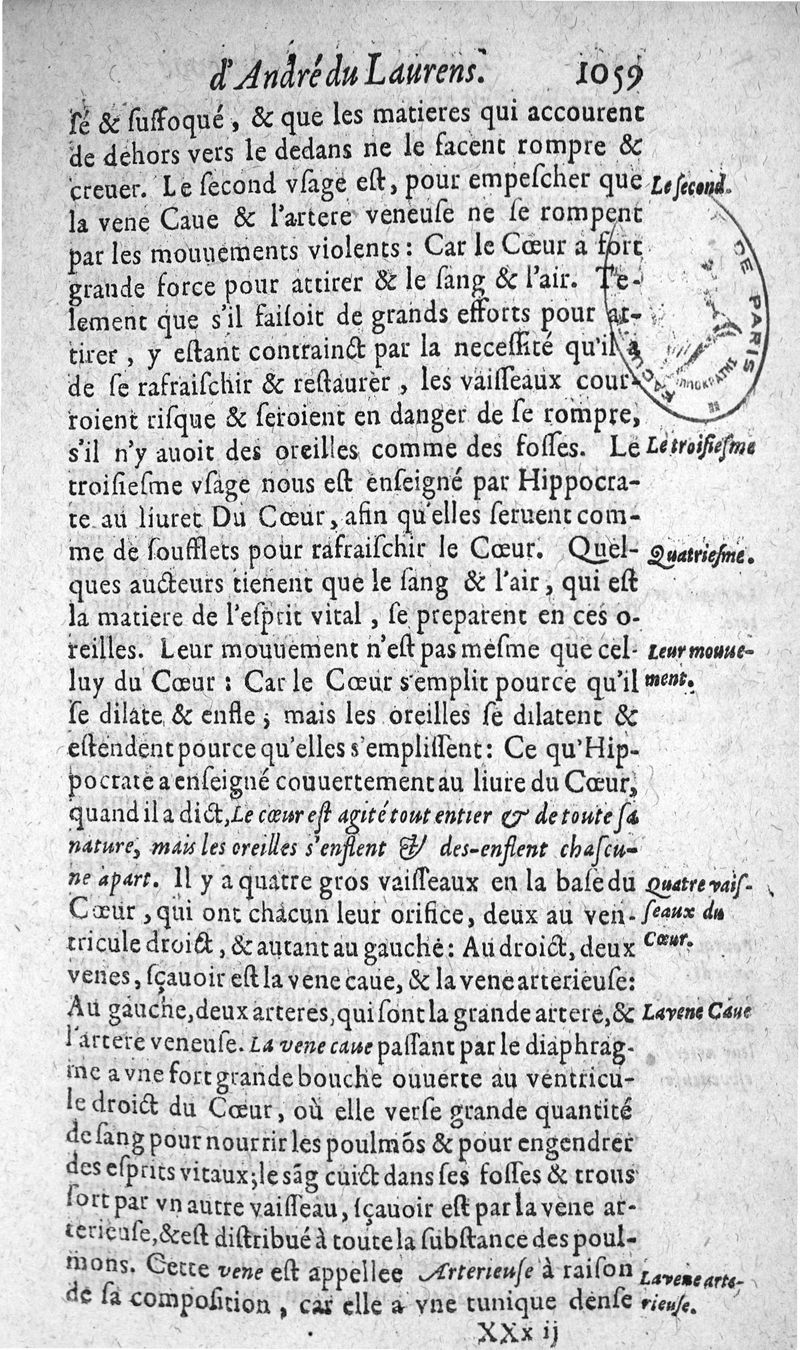 d'André du Laurens. 1059
ſé & ſuffoqué, & que les matieres qui accourent
de dehors vers le dedans ne le facent rompre &
creuer. Le ſecond vſage eſt, pour empeſcher que
Le ſecond.
la vene Caue & l'artere veneuſe ne ſe rompent
par les mouuements violents: Car le Cœur a fort
grande force pour attirer & le ſang & l'air. Te-
lement que s'il faiſoit de grands efforts pour at-
tirer, y eſtant contrainct par la neceſſité qu'il a
de ſe rafraiſchir & reſtaurer, les vaiſſeaux cour-
roient riſque & ſeroient en danger de ſe rompre,
s'il n'y auoit des oreilles comme des foſſes. Le
Le troiſieſme
troiſieſme vſage nous eſt enſeigné par Hippocra-
te au liuret Du Cœur, afin qu'elles ſeruent com-
me de ſoufflets pour rafraiſchir le Cœur. Quel-
Quatrieſme.
ques aucteurs tienent que le ſang & l'air, qui eſt
la matiere de l'eſprit vital, ſe preparent en ces o-
reilles. Leur mouuement n'eſt pas meſme que cel-
Leur mouue-
luy du Cœur: Car le Cœur s'emplit pource qu'il
ment.
ſe dilate & enfle; mais les oreilles ſe dilatent &
eſtendent pource qu'elles s'empliſſent: Ce qu'Hip-
pocrate a enſeigné couuertement au liure du Cœur,
quand il a dict, Le cœur eſt agité tout entier & de toute ſa
nature, mais les oreilles s'enflent & des-enflent chaſcu-
ne apart. Il y a quatre gros vaiſſeaux en la baſe du
Quatre vaiſ-
Cœur, qui ont chacun leur orifice, deux au ven-
ſeaux du
tricule droict, & autant au gauche: Au droict, deux
Cœur.
venes, ſçauoir eſt la vene caue, & la vene arterieuſe:
Au gauche, deux arteres, qui ſont la grande artere, &
La vene Caue
l'artere veneuſe. La vene caue paſſant par le diaphrag-
me a vne fort grande bouche ouuerte au ventricu-
le droict du Cœur, où elle verſe grande quantité
de ſang pour nourrir les poulmõs & pour engendrer
des eſprits vitaux; le sãg cuict dans ſes foſſes & trous
ſort par vn autre vaiſſeau, ſçauoir eſt par la vene ar-
terieuſe, & eſt diſtribué à toute la ſubſtance des poul-
mons. Cette vene eſt appellee Arterieuſe à raiſon
La vene arte-
de ſa compoſition, car elle a vne tunique denſe
rieuſe.
XXx ij
DE PARIS